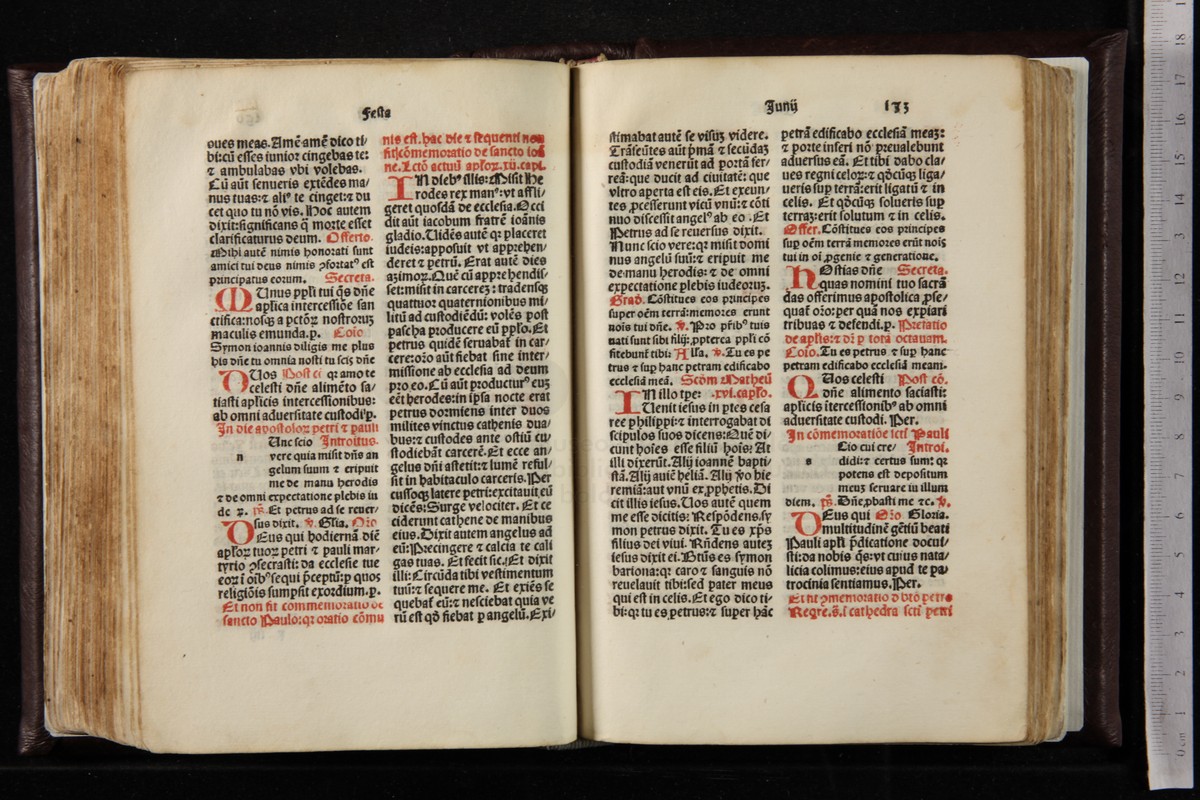 Festa
oues meas. Amē amē dico ti-
bi: cū esses iunior cingebas te:
⁊ ambulabas vbi volebas.
Cū aūt senueris extēdes ma-
nus tuas: ⁊ aliꝰ te cinget: ⁊ du
cet quo tu nō vis. Hoc autem
dixit: significans q̄ morte esset
clarificaturus deum. Offerto.
Mihi autē nimis honorati sunt
amici tui deus nimis ꝯfortatꝰ est
principatus eorum. Secreta.
MUnus ppli tui q̄s dn̄e
aplica intercessiōe san
ctifica: nosq̨ a pctōꝝ nostroruꝫ
maculis emunda. p. Cōio
Symon ioannis diligis me plus
his dn̄e tu omnia nosti tu scis dn̄e
QUos Post cō qꝛ amo te
celesti dn̄e alimēto sa-
tiasti apl̄icis intercessionibus:
ab omni aduersitate custodi. p.
In die apostoloꝝ petri ⁊ pauli
n Unc scio Introitus.
vere quia misit dn̄s an
gelum suum ⁊ eripuit
me de manu herodis
⁊ de omni expectatione plebis iu
de ꝝ. ps̄. Et petrus ad se reuer/
sus dixit. v̄. Gl̄ia. Oro
DEus qui hodiernā diē
apl̄oꝝ tuoꝝ petri ⁊ pauli mar-
tyrio ꝯsecrasti: da ecclesie tue
eoꝝ ī oībꝰ sequi p̄ceptū: p quos
religiōis sumpsit exordium. p.
Et non fit commemoratio de
sancto Paulo: qꝛ oratio cōmu
nis est. hac die ⁊ sequenti non
fit cōmemoratio de sancto ioā
ne. Lectō actuū apl̄oꝝ. xii. capi.
IN diebꝰ illis: Misit He
rodes rex manꝰ: vt affli
geret quosdā de ecclesia. Occi
dit aūt iacobum fratrē ioānis
gladio. Uidēs autē qꝛ placeret
iudeis: apposuit vt apprehen-
deret ⁊ petrū. Erat autē dies
azimoꝝ. Quē cū apprehendis-
set: misit in carcereꝫ: tradensq̨
quattuor quaternionibus mi-
litū ad custodiēdū: volēs post
pascha producere eū pplo. Et
petrus quidē seruabat̄ in car-
cere: orō aūt fiebat sine inter-
missione ab ecclesia ad deum
pro eo. Cū aūt producturꝰ euꝫ
eēt herodes: in ipsa nocte erat
petrus dormiens inter duos
milites vinctus cathenis dua-
bus: ⁊ custodes ante ostiū cu-
stodiebāt carcerē. Et ecce an-
gelus dn̄i astetit: ⁊ lumē reful-
sit in habitaculo carceris. Per
cussoq̨ latere petri: excitauit eū
dicēs: Surge velociter. Et ce
ciderunt cathene de manibus
eius. Dixit autem angelus ad
eū: Precingere ⁊ calcia te cali
gas tuas. Et fecit sic. Et dixit
illi: Circūda tibi vestimentum
tuū: ⁊ sequere me. Et exiēs se
quebat̄ eū: ⁊ nesciebat quia ve
rū est qd̄ fiebat p angelū. Exi-
Junij 173
stimabat autē se visuꝫ videre.
Trāseūtes aūt p̄mā ⁊ secūdaꝫ
custodiā venerūt ad portā fer-
reā: que ducit ad ciuitatē: que
vltro aperta est eis. Et exeun-
tes ꝓcesserunt vicū vnū: ⁊ cōti
nuo discessit angelꝰ ab eo. Et
Petrus ad se reuersus dixit.
Nunc scio vere: qꝛ misit domi
nus angelū suū: ⁊ eripuit me
de manu herodis: ⁊ de omni
expectatione plebis iudeoruꝫ.
Grad. Cōstitues eos principes
super oēm terrā: memores erunt
nois tui dn̄e. v̄. Pro pr̄ibꝰ tuis
nati sunt tibi filij: ꝓpterea ppli cō
fitebunt̄ tibi: Alla. v̄. Tu es pe
trus ⁊ sup hanc petram edificabo
ecclesiā meā. Scd̄m Matheū
IN illo tpe: .xvi. caplo.
Uenit iesus in ptes cesa
ree philippi: ⁊ interrogabat di
scipulos suos dicens: Quē di-
cunt hoīes esse filiū hoīs? At
illi dixerūt. Alij ioannē bapti-
stā. Alij autē heliā. Alij v̄o hie
remiā: aut vnū ex ꝓphetis. Di
cit illis iesus. Uos autē quem
me esse dicitis: Respōdens sy
mon petrus dixit. Tu es xp̄s
filius dei viui. Rn̄dens auteꝫ
iesus dixit ei. Btūs es symon
bariona: qꝛ caro ⁊ sanguis nō
reuelauit tibi: sed pater meus
qui est in celis. Et ego dico ti-
bi: qꝛ tu es petrus: ⁊ super hāc
petrā edificabo ecclesiā meaꝫ:
⁊ porte inferi nō preualebunt
aduersus eā. Et tibi dabo cla-
ues regni celoꝝ: ⁊ qd̄cūq̨ liga-
ueris sup terrā: erit ligatū ⁊ in
celis. Et qd̄cūq̨ solueris sup
terraꝫ: erit solutum ⁊ in celis.
Offer. Cōstitues eos principes
sup oēm terrā memores erūt nois
tui in oi ꝓgenie ⁊ generatione.
HOstias dn̄e Secreta.
quas nomini tuo sacrā
das offerimus apostolica ꝓse-
quat̄ orō: per quā nos expiari
tribuas ⁊ defendi. p. Prefatio
de apl̄is: ⁊ dr̄ p totā octauam.
Cōio. Tu es petrus ⁊ sup hanc
petram edificabo ecclesiā meam.
QUos celesti Post cō.
dn̄e alimento saciasti:
apl̄icis ītercessionibꝰ ab omni
aduersitate custodi. Per.
In cōmemoratiōe scti Pauli
s Cio cui cre/ Introi.
didi: ⁊ certus sum: qꝛ
potens est depositum
meuꝫ seruare in illum
diem. ps̄. Dn̄e ꝓbasti me ⁊c. v̄.
DEus qui Oro Gloria.
multitudinē gētiū beati
Pauli apl̄i p̄dicatione docui/
sti: da nobis q̄s: vt cuius nata/
licia colimus: eius apud te pa/
trocinia sentiamus. Per.
Et fit ꝯmemoratio d̄ btō petro
Reqre. s̄. ī cathedra scti petri